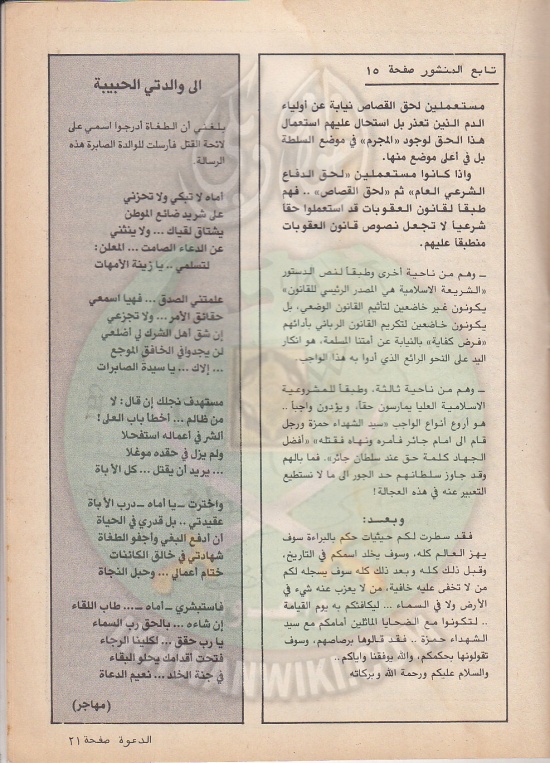 تابع المنشور صفحة ١٥
مستعملين لحق القصاص نيابة عن أولياء
الدم الذين تعذر بل استحال عليهم استعمال
هذا الحق لوجود «المجرم» في موضع السلطة
بل في أعلى موضع منها.
واذا كانوا مستعملين «لحق الدفاع
الشرعي العام» ثم «لحق القصاص» .. فهم
طبقاً لقانون العقوبات قد استعملوا حقاً
شرعياً لا تجعل نصوص قانون العقوبات
منطبقا عليهم.
ــ وهم من ناحية أخرى وطبقاً لنص الدستور
«الشريعة الاسلامية هي المصدر الرئيسي للقانون»
يكونون غير خاضعين لتأثيم القانون الوضعي، بل
يكونون خاضعين لتكريم القانون الرباني بأدائهم
«فرض كفاية» بالنيابة عن أمتنا المسلمة، هو انكار
اليد على النحو الرائع الذي أدوا به هذا الواجب.
ــ وهم من ناحية ثالثة، وطبقاً للمشروعية
الاسلامية العليا يمارسون حقاً، ويؤدون واجباً ..
هو أروع أنواع الواجب «سيد الشهداء حمزة ورجل
قام الى امام جائر فأمره ونهاه فقتله» «أفضل
الجهاد كلمة حق عند سلطان جائر». فما بالهم
وقد جاوز سلطانهم حد الجور الى ما لا نستطيع
التعبير عنه في هذه العجالة!
وبعد:
فقد سطرت لكم حيثيات حكم بالبراءة سوف
يهز العالم كله، وسوف يخلد اسمكم في التاريخ،
وقبل ذلك كله وبعد ذلك كله سوف يسجله لكم
من لا تخفى عليه خافية، من لا يعزب عنه شيء في
الأرض ولا في السماء ... ليكافئكم به يوم القيامة
.. لتكونوا مع الضحايا الماثلين أمامكم مع سيد
الشهداء حمزة .. فقد قالوها برصاصهم، وسوف
تقولونها بحكمكم، والله يوفقنا وإياكم..
والسلام عليكم ورحمة الله وبركاته
الى والدتي الحبيبة
بلغني أن الطغاة أدرجوا اسمي على
لائحة القتل فأرسلت للوالدة الصابرة هذه
الرسالة.
أماه لا تبكي ولا تحزني
على شريد ضائع الموطن
يشتاق لقياك ... ولا ينثني
عن الدعاء الصامت ... المعلن:
لتسلمي .. يا زينة الأمهات
علمتني الصدق ... فهيا اسمعي
حقائق الأمر ... ولا تجزعي
إن شق أهل الشرك لي أضلعي
لن يجدوا في الخافق الموجع
... إلاك ... يا سيدة الصابرات
مستهدف نجلك إن قال: لا
من ظالم ... أخطأ باب العلى!
ألشر في أعماله استفحلا
ولم يزل في حقده موغلا
... يريد أن يقتل ... كل الأباة
واخترت ــ يا أماه ــ درب الأباة
عقيدتي .. بل قدري في الحياة
أن أدفع البغي وأجفو الطغاة
شهادتي في خالق الكائنات
ختام أعمالي ... وحبل النجاة
فاستبشري ــ أماه ــ... طاب اللقاء
إن شاءه ... بالحق رب السماء
يا رب حقق ... لكلينا الرجاء
فتحت أقدامك يحلو البقاء
في جنة الخلد ... نعيم الدعاة
(مهاجر)
الدعوة صفحة ٢١